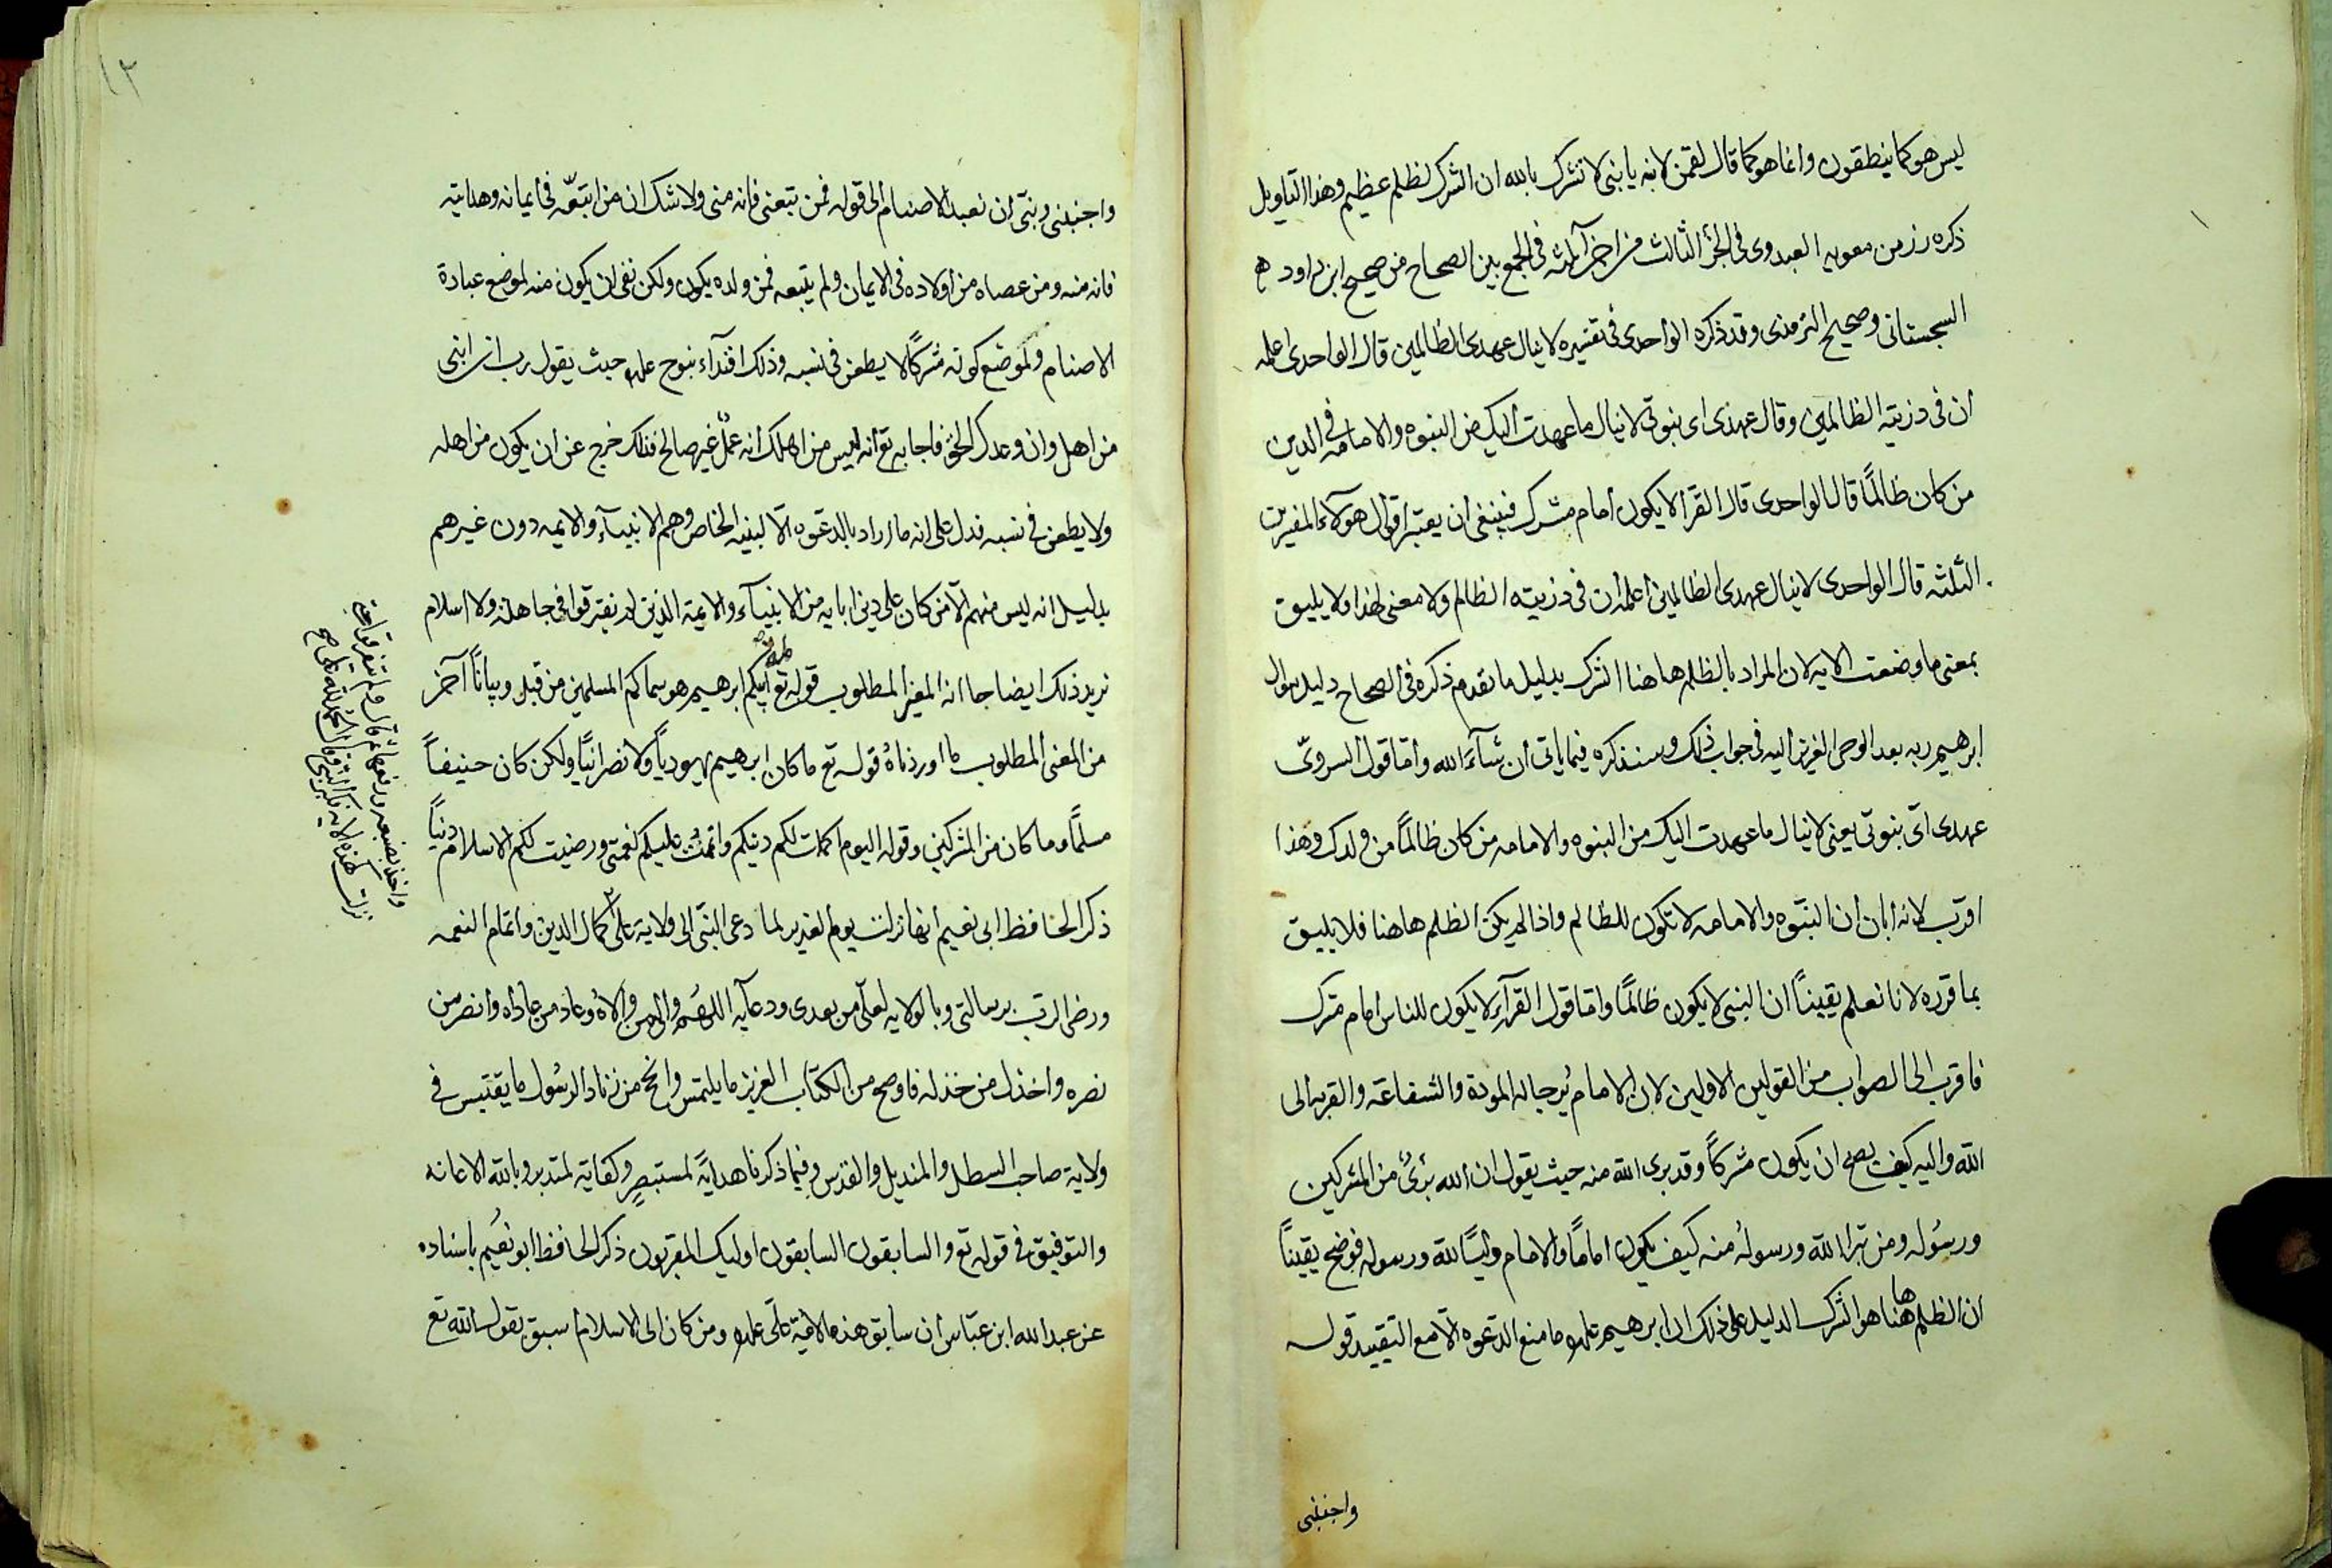 ليس هو كما ينطقون وانما هو كما قال لقمن لابنه يا بنى لا تشرك بالله ان الشرك لظلم عظيم وهذا التاويل
ذكره رزمن معويه العبدوى فى الجزؤ الثالث من اجزآ ثلثه فى الجمع بين الصحاح من صحيح ابن داود
السجستانى وصحيح الترمذى وقد ذكره الواحدى فى تفسيره لا ينال عهدى الظالمين قال الواحدى اعلمه
ان فى ذريته الظالمين وقال عهدى اى نبوتى لا ينال ما عهدت اليك من النبوه والامامه فى الدين
من كان ظالمًا قال الواحدى قال الفرا لا يكون امام مشرك فينبغى ان يعتبر اقوال هولآء المفسرين
الثلثه قال الواحدى لا ينال عهدى الظالمين اعلمه ان فى ذريته الظالم ولا معنى لهذا ولا يليق
بمعنى ما وضعت الايه لان المراد بالظلم هاهنا الشرك بدليل ما تقدم ذكره فى الصحاح دليل سوال
ابرهيم ربه بعد الوحى العزيز اليه فى جواب ذلك وسنذكره فيما ياتى ان شآء الله واما قول السروىّ
عهدى اى نبوتى يعنى لا ينال ما عهدت اليك من النبوه والامامه من كان ظالمًا من ولدك وهذا
اقرب لانه ابان ان النبوه والامامه لا تكون للظالم واذا لم يكن الظلم هاهنا فلا يليق
بما قرره لانا نعلم يقينًا ان النبى لا يكون ظالمًا واما قول الفرآء لا يكون للناس امام مشرك
فاقرب الى الصواب من القولين الاولين لان الامام يُرجا له المودة والشفاعة والقربه الى
الله واليه كيف يصح ان يكون مشركًا وقد برى الله منه حيث يقول ان الله برىٔ من المشركين
ورسُوله ومن تبرا الله ورسولهُ منه كيف يكون امامًا والامام وليًا لله ورسوله فوضح يقينًا
ان الظلم هاهنا هو الشرك الدليل على ذلك ان ابرهيم علىه ما منع الدعوه الا مع التقييد قوله
واجنبنى
١٢
واجنبنى وبنىّ ان نعبد الاصنام الى قوله فمن تبعنى فانه منى ولا شك ان من اتبعه فى ايمانه وهدايته
فانه منه ومن عصاه من اولاده فى الايمان ولم يتبعه فمن ولده يكون ولكن نفى ان يكون منه لموضع عبادة
الاصنام ولموضع كونه مشركًا لا يطعن فى نسبه وذلك اقتدآء بنوح علىه حيث يقول رب ان ابنى
من اهلى وان وعدك الحق فاجابه تع انه ليس من اهلك انه عملٌ غير صالح فذلك خرج عن ان يكون من اهله
ولا يطعن فى نسبه فدل على انه ما اراد بالدعوه الّا لبنيه الخاص وهم الانبيآء والايمه دون غيرهم
بدليل انه ليس منهم الا من كان على دين ابايه من الانبيآء والايمة الذين لم يفترقوا فى جاهلية ولا اسلام
نريد ذلك ايضاحا انه المعنى المطلوب قوله تع ملة ابيكم ابرهيم هو سماكم المسلمين من قبل وبيانًا آخر
من المعنى المطلوب ما اوردناهُ قوله تع ما كان ابرهيم يهوديًا ولا نصرانيًا ولكن كان حنيفًا
مسلمًا وما كان من المشركين وقوله اليوم اكملت لكم دينكم واتممتُ عليكم نعمتى ورضيت لكم الاسلام دينًا
ذكر الحافظ ابى نعيم انها نزلت يوم الغدير لما دعى النبى الى ولاية على كمال الدين واتمام النعمه
ورضى الرب برسالتى وبالولايه لعلى من بعدى ودعآيه اللهم والِ من والاهُ وعاد من عاداه وانصر من
نصره واخذل من خذله فاوضح من الكتاب العزيز ما يلتمس وانحج من زناد الرسُول ما يقتبس فى
ولاية صاحب السطل والمنديل والقدس وفيما ذكرنا هدايةً لمستبصرٍ وكفاية لمتدبر وبالله الاعانه
والتوفيق فى قوله تع والسابقون السابقون اوليك المقربون ذكر الحافظ ابو نعُيم باسناده
عن عبد الله ابن عبّاس ان سابق هذه الامة على علىه ومن كان الى الاسلام اسبق بقول الله تع
واخذ بضبعه ورفعها
نزلت هذه الايه